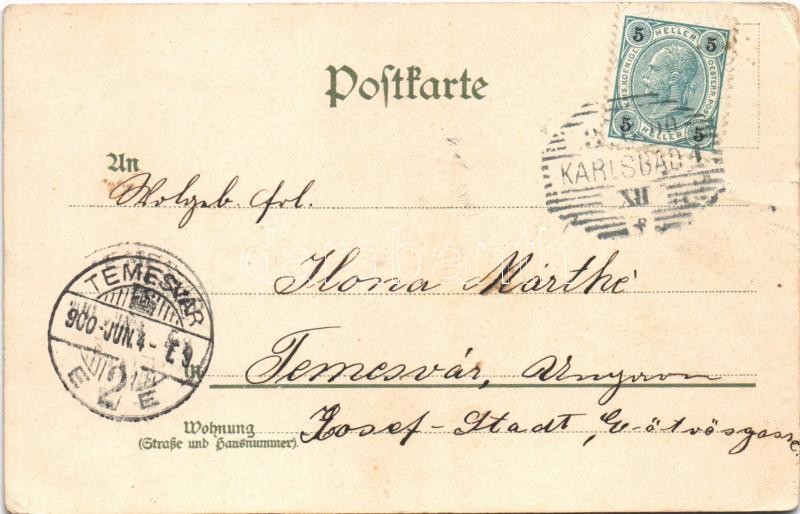 5 HELLER 5
KAIS. KOENIGL. OESTERR. POST
5 HELLER 5
Postkarte
KARLSBAD 1
XII
An
Wolgeb. frl.
Ilona Márthé
TEMESVÁR
900-JUN. 4-
E 2 E
in
Temesvár, Ungarn
Wohnung
(Straße und Hausnummer).
Josef-Stadt, Eötvösgasse
darabanth